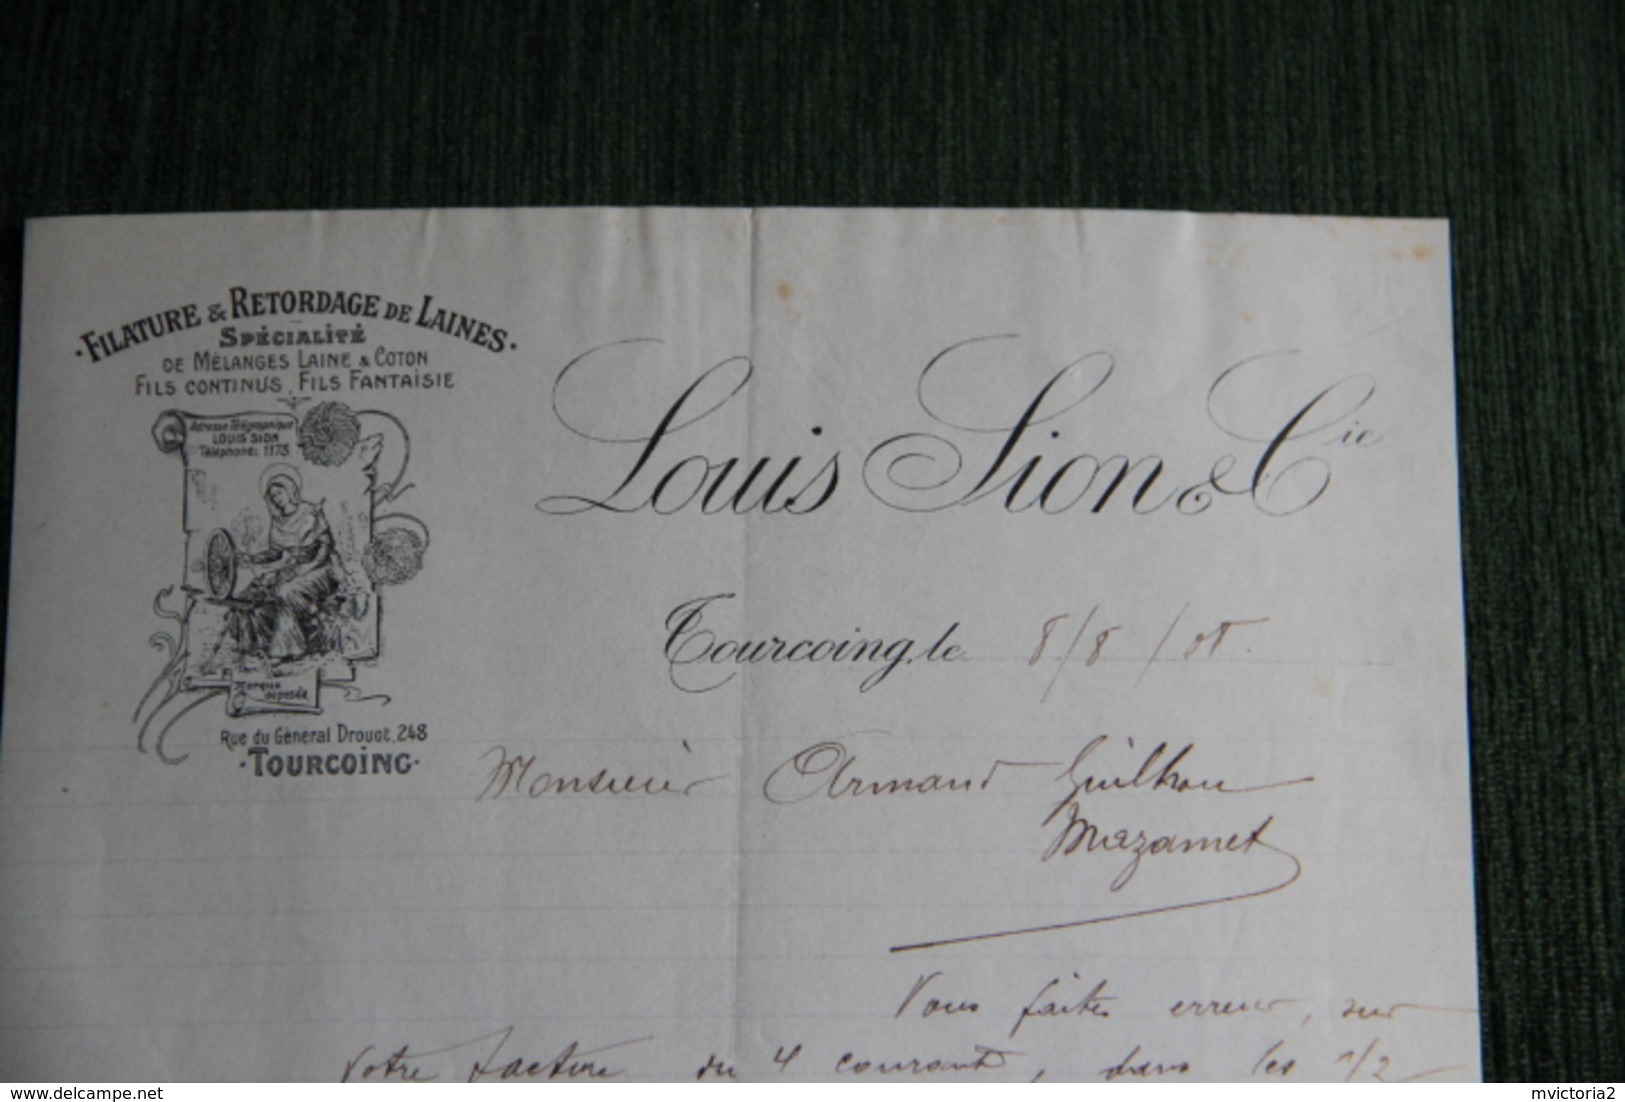 ·FILATURE & RETORDAGE DE LAINES·
SPÉCIALITÉ
DE MÉLANGES LAINE & COTON
FILS CONTINUS, FILS FANTAISIE
Adresse Télégraphique
LOUIS SION
Téléphone: 1173
Marque
déposée
Rue du Général Drouot, 248
·TOURCOING·
Louis Sion & Cie
Tourcoing, le 8/8/08
Monsieur Armand Guilhou
Mazamet
Vous faites erreur, sur
votre facture du 4 courant, dans les 1/2
delcampe.net
mvictoria2